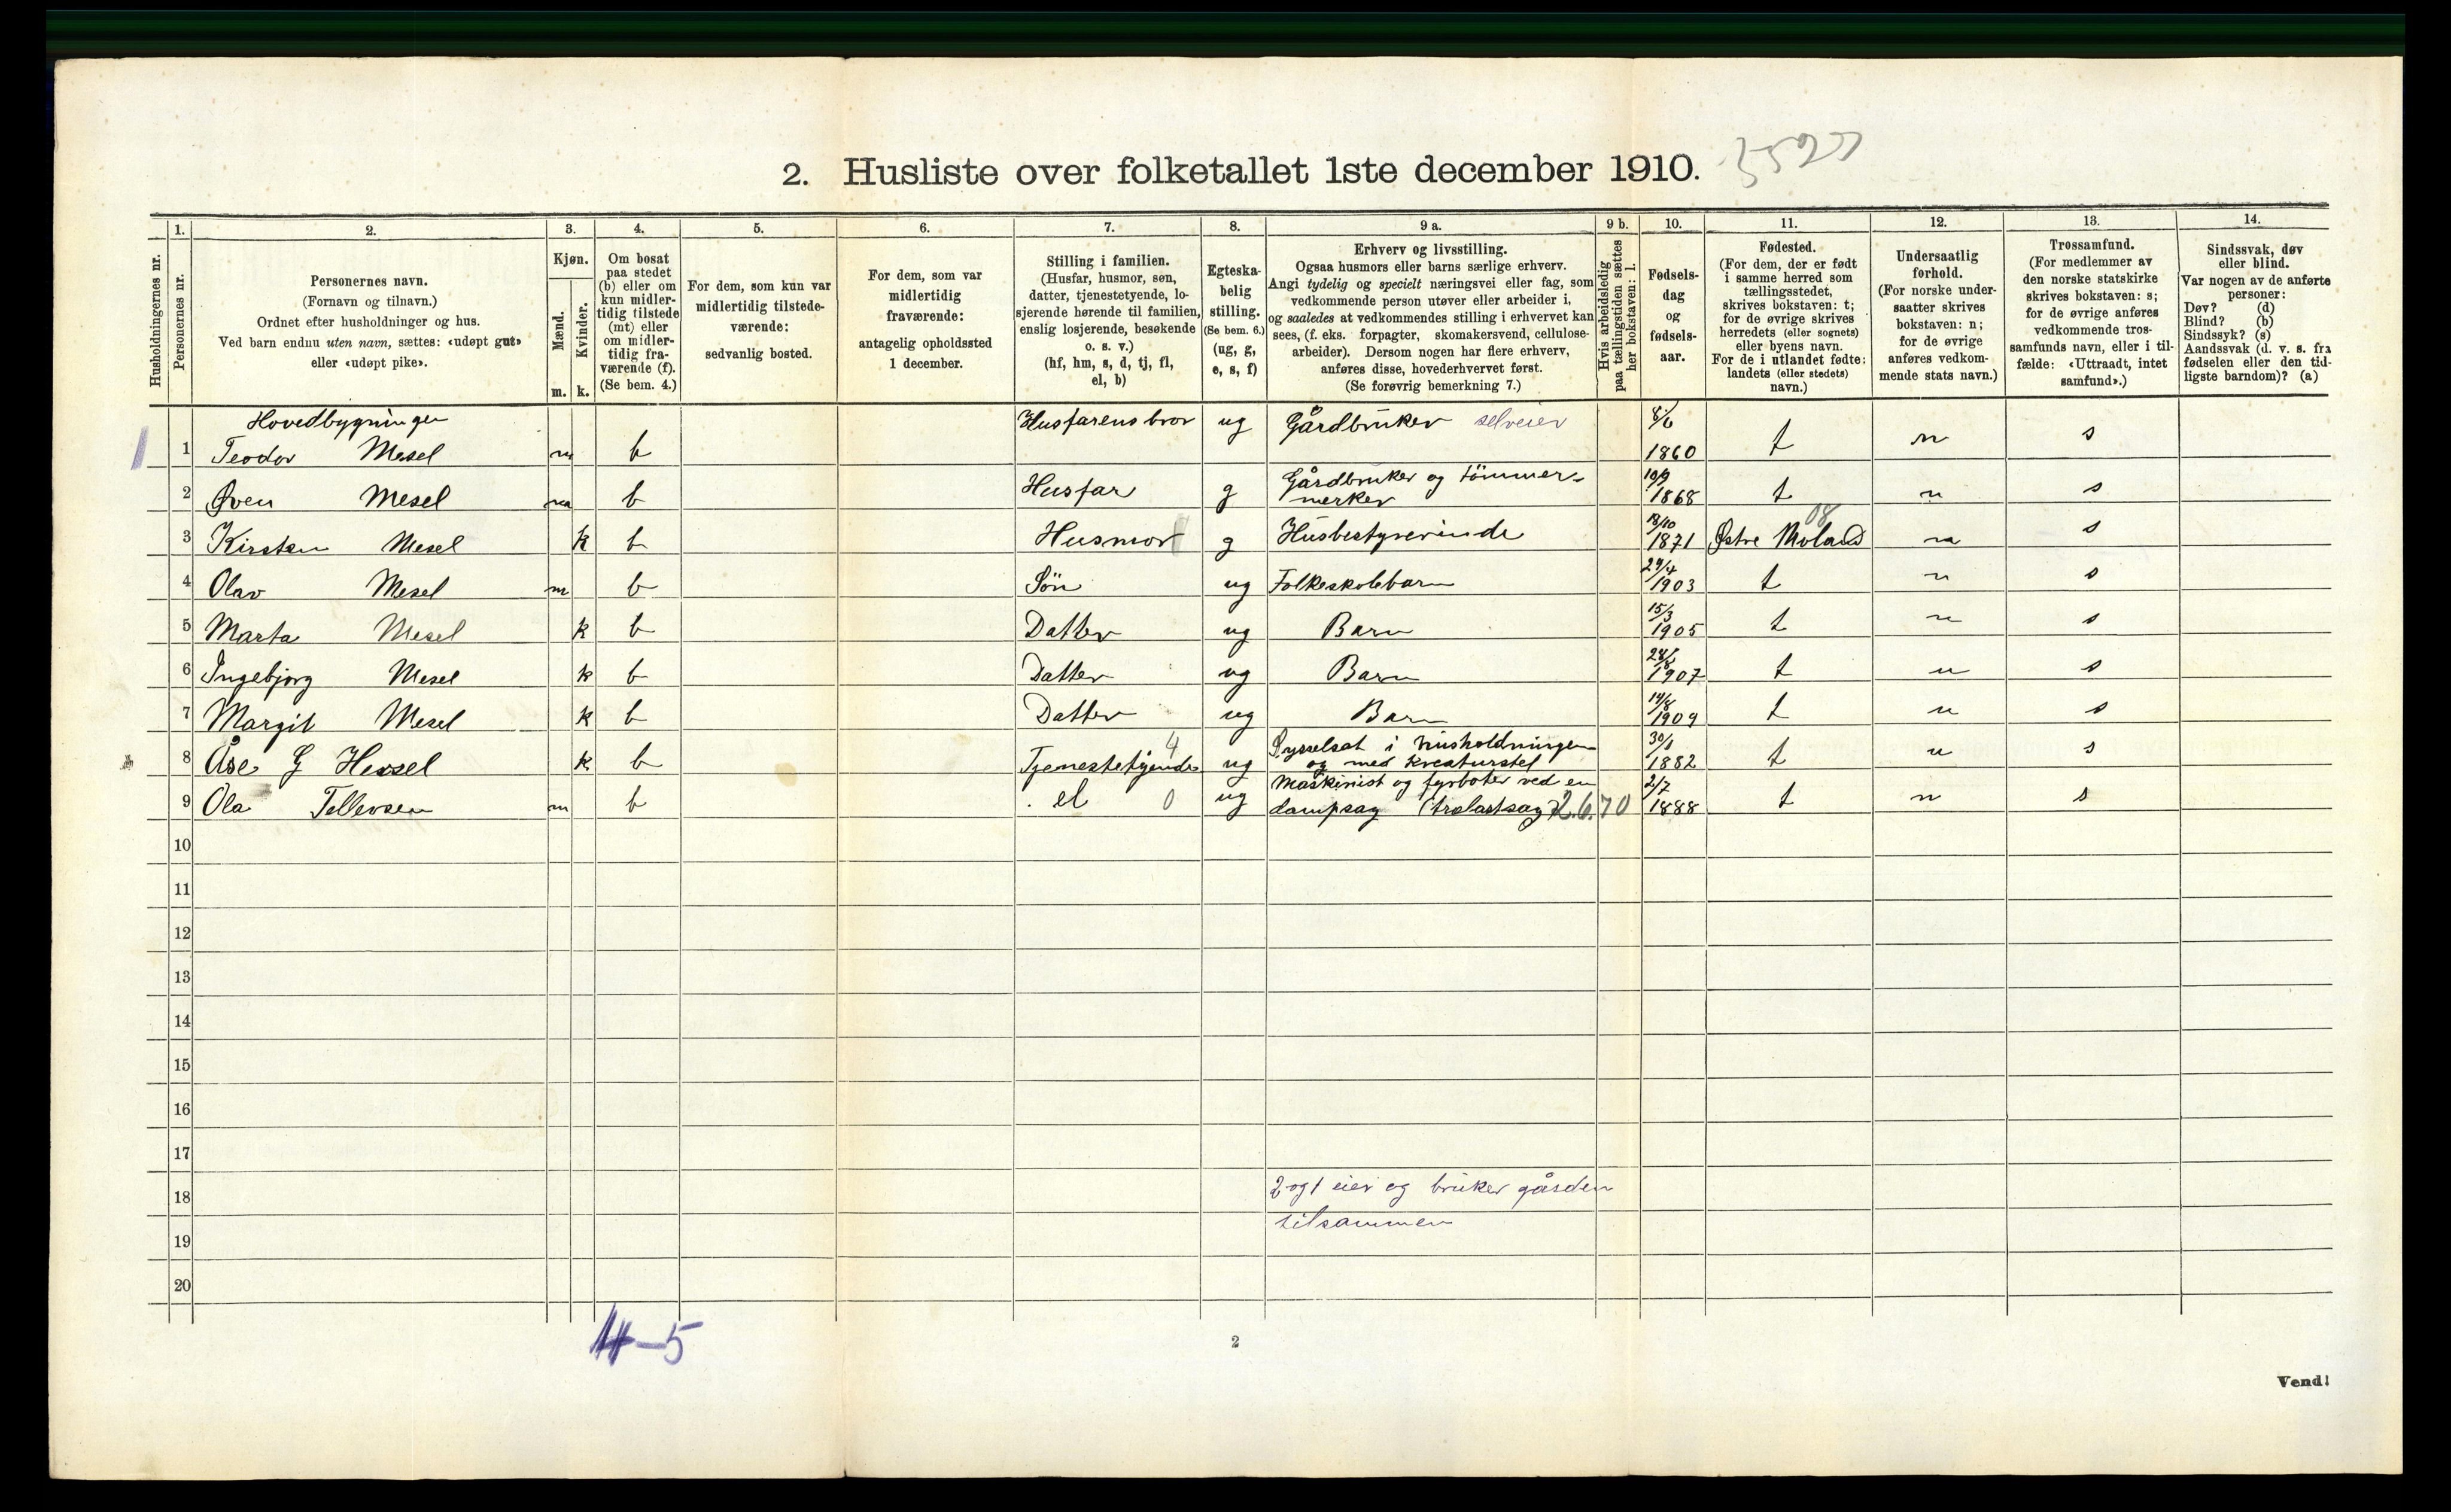 2. Husliste over folketallet 1ste december 1910.
Husholdningernes nr.
1. Personernes nr.
2. Personernes navn.
(Fornavn og tilnavn.)
Ordnet efter husholdninger og hus.
Ved barn endnu uten navn, sættes: «udøpt gut»
eller «udøpt pike».
3. Kjøn.
Mænd. m.
Kvinder. k.
4. Om bosat
paa stedet
(b) eller om
kun midler-
tidig tilstede
(mt) eller
om midler-
tidig fra-
værende (f).
(Se bem. 4.)
5. For dem, som kun var
midlertidig tilstede-
værende:
sedvanlig bosted.
6. For dem, som var
midlertidig
fraværende:
antagelig opholdssted
1 december.
7. Stilling i familien.
(Husfar, husmor, søn,
datter, tjenestetyende, lo-
sjerende hørende til familien,
enslig losjerende, besøkende
o. s. v.)
(hf, hm, s, d, tj, fl,
el, b)
8. Egteska-
belig
stilling.
(Se bem. 6.)
(ug, g,
e, s, f)
9 a. Erhverv og livsstilling.
Ogsaa husmors eller barns særlige erhverv.
Angi tydelig og specielt næringsvei eller fag, som
vedkommende person utøver eller arbeider i,
og saaledes at vedkommendes stilling i erhvervet kan
sees, (f. eks. forpagter, skomakersvend, cellulose-
arbeider). Dersom nogen har flere erhverv,
anføres disse, hovederhvervet først.
(Se forøvrig bemerkning 7.)
9 b. Hvis arbeidsledig
paa tællingstiden sættes
her bokstaven: l.
10. Fødsels-
dag
og
fødsels-
aar.
11. Fødested.
(For dem, der er født
i samme herred som
tællingsstedet,
skrives bokstaven: t;
for de øvrige skrives
herredets (eller sognets)
eller byens navn.
For de i utlandet fødte:
landets (eller stedets)
navn.)
12. Undersaatlig
forhold.
(For norske under-
saatter skrives
bokstaven: n;
for de øvrige
anføres vedkom-
mende stats navn.)
13. Trossamfund.
(For medlemmer av
den norske statskirke
skrives bokstaven: s;
for de øvrige anføres
vedkommende tros-
samfunds navn, eller i til-
fælde: «Uttraadt, intet
samfund».)
14. Sindssvak, døv
eller blind.
Var nogen av de anførte
personer:
Døv? (d)
Blind? (b)
Sindssyk? (s)
Aandssvak (d. v. s. fra
fødselen eller den tid-
ligste barndom)? (a)
Hovedbygningen
1 Teodor Mesel m b Husfarens bror ug Gårdbruker selveier 8/6 1860 t n s
2 Øven Mesel m b Husfar g Gårdbruker og tömmer-
merker 10/9 1868 t n s
3 Kirsten Mesel k b Husmor g Husbestyrerinde 13/10 1871 Østre Moland 08 n s
4 Olav Mesel m b Sön ug Folkeskolebarn 29/4 1903 t n s
5 Marta Mesel k b Datter ug Barn 15/3 1905 t n s
6 Ingebjorg Mesel k b Datter ug Barn 1907 t n s
7 Margit Mesel k b Datter ug Barn 14/8 1909 t n s
8 Åse G Hessel k b Tjenestetyende 4 ug Sysselsat i husholdningen
og med kreaturstel 30/1 1882 t n s
9 Ola Tellevsen m b el 0 ug Maskinist og fyrbøter ved en
dampsag (trælastsag) 2.6.70 2/7 1888 t n s
10
11
12
13
14
15
16
17
18 2 og 1 eier og bruker gården
tilsammen
19
20
4-5
2
Vend!